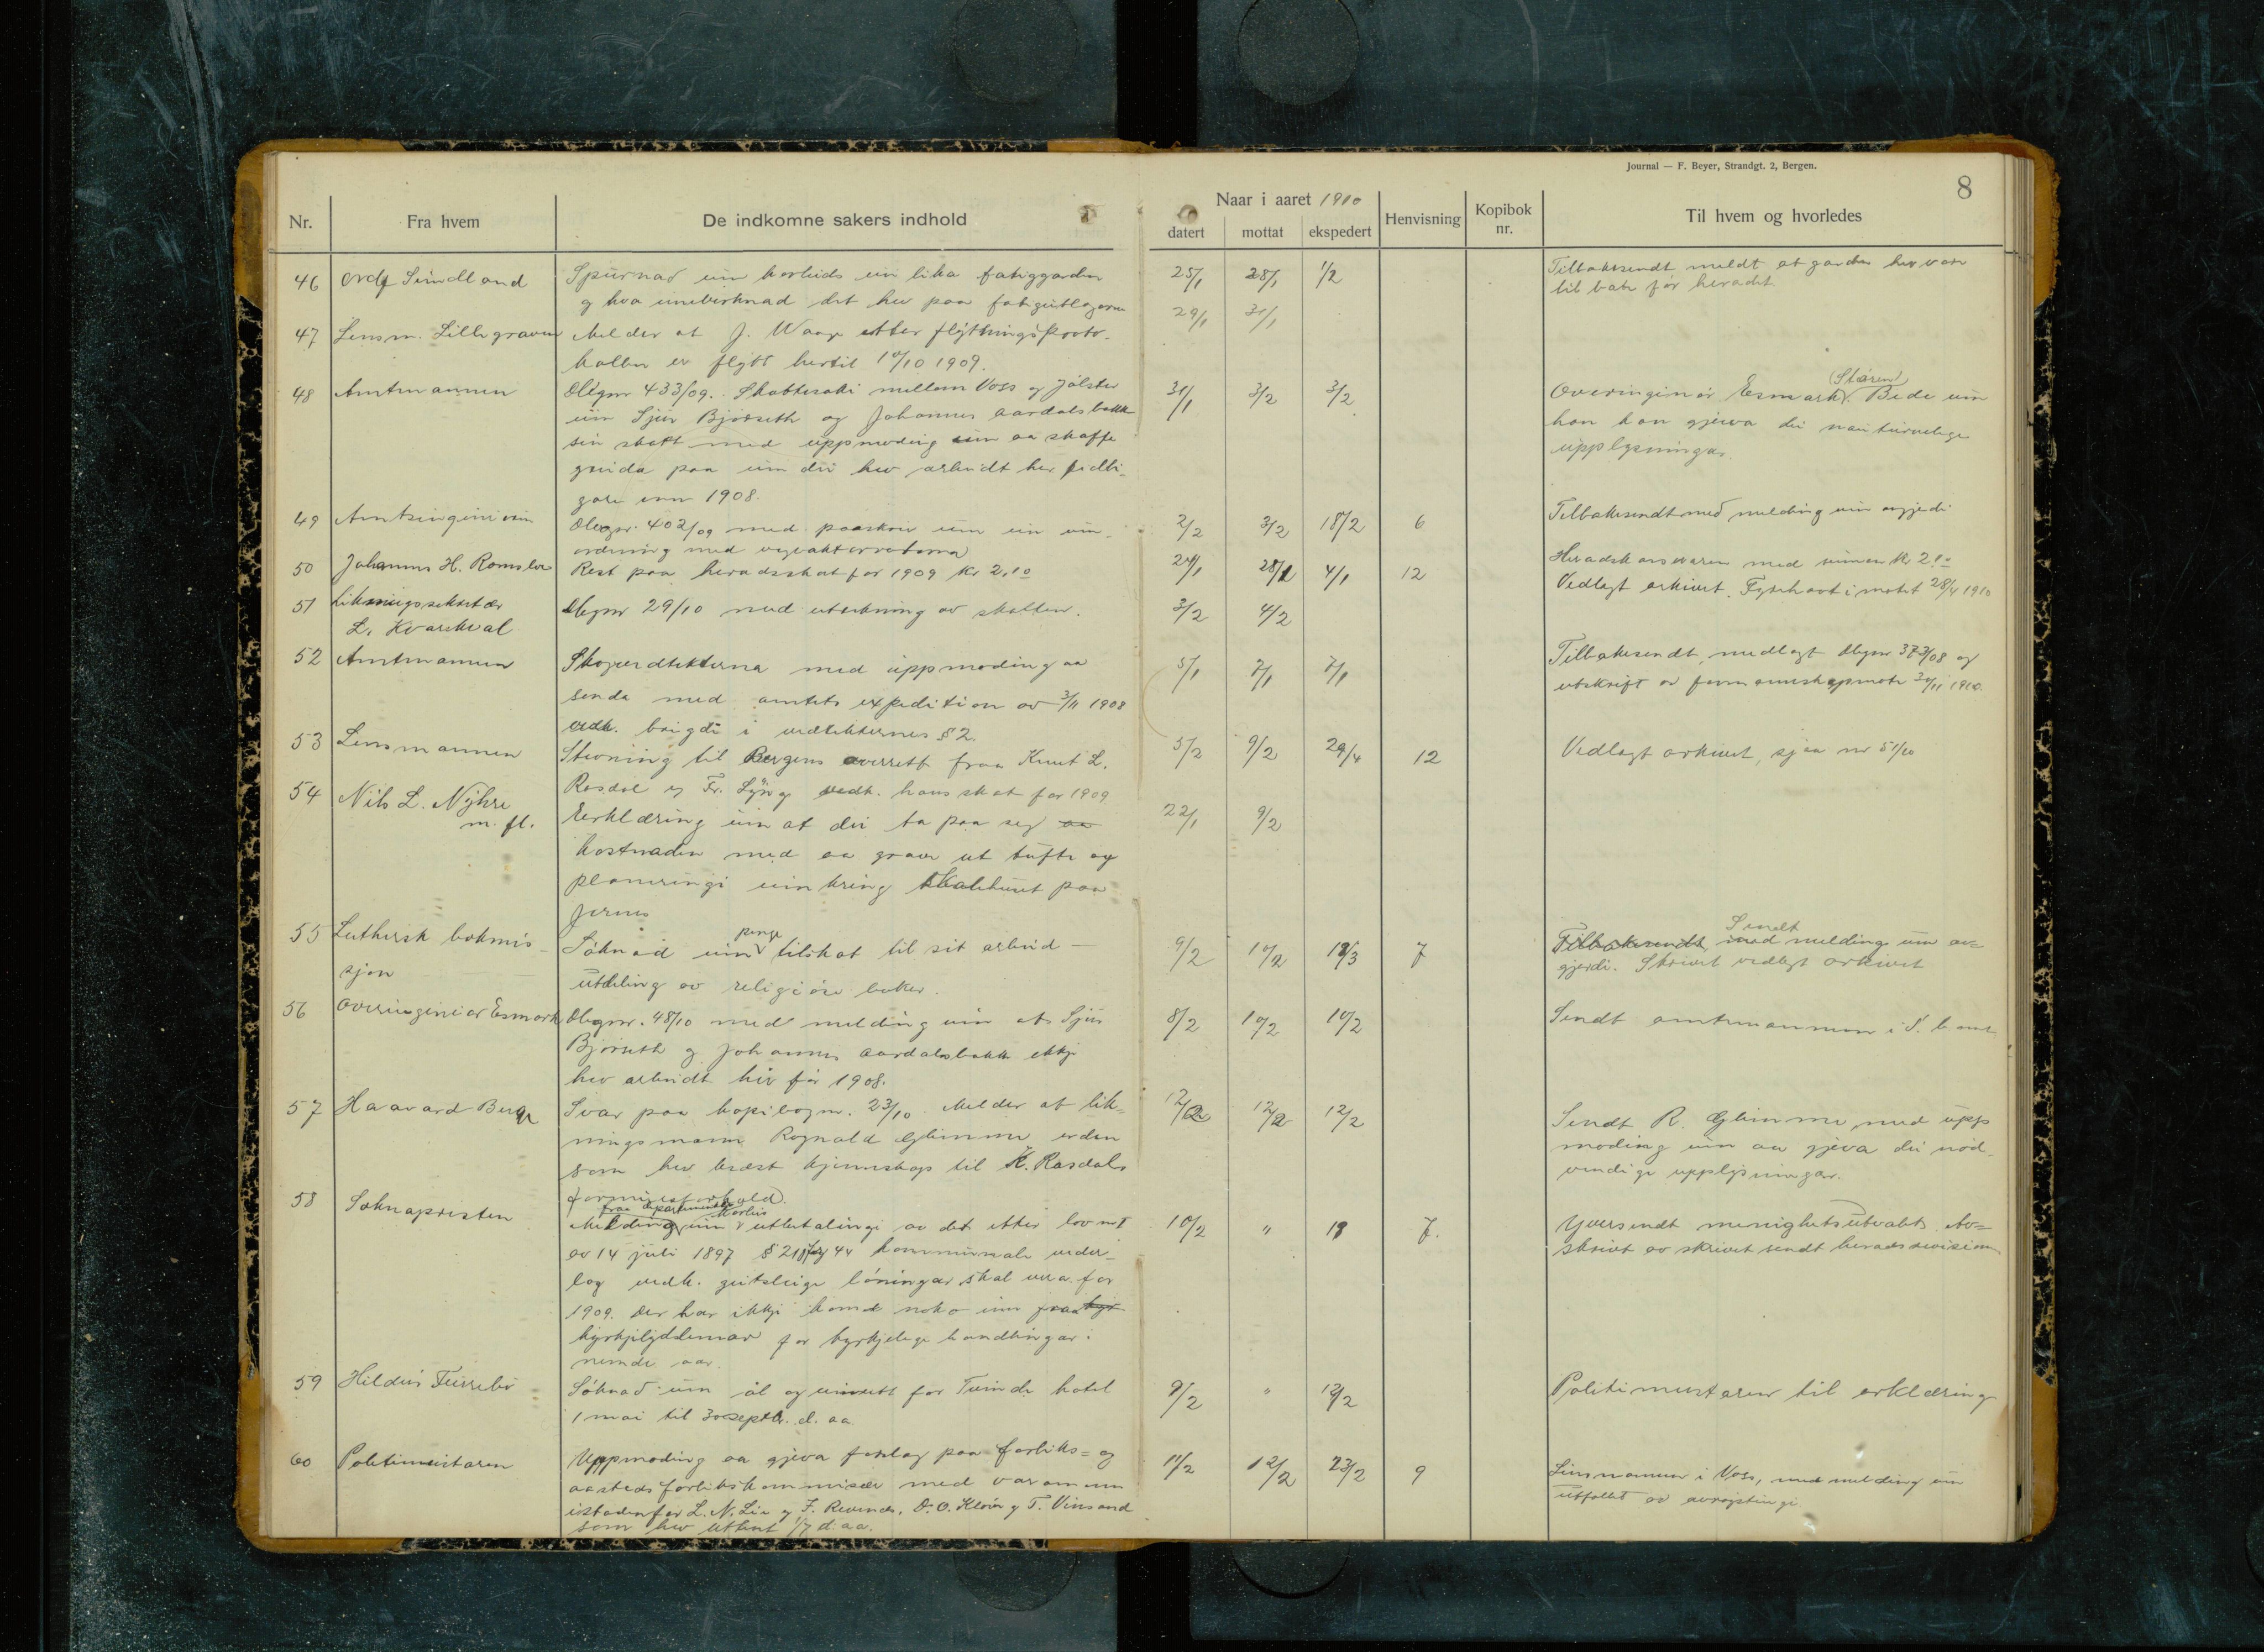 Journal — F. Beyer, Strandgt. 2, Bergen.
8
Nr. Fra hvem De indkomne sakers indhold Naar i aaret 1910 Henvisning Kopibok nr. Til hvem og hvorledes
datert mottat ekspedert
46 Ordf Sundland Spursmaal um korleids um lika fatiggarden 25/1 28/1 1/2 Tilbakesendt meldt at garden hev vore
og kva umberknad det hev paa til bate før heradet
47 Lensm. Lillegraven Melder at J. Waage etter flytningsproto- 29/1 31/1
kollen er flytt hertil 10/10 1909.
48 Amtmannen Dbgnr 433/09. Skattesaki mellem Voss og Jølster 31/1 3/2 3/2 Overingeniør Esmark (Støren) Bede um
um Sjur Bjørseth og Johannes Aardalsbakk han kan gjeva dei naudturvelege
sin skatt med uppmoding um aa skaffe upplysningar.
greida paa um dei hev arbeidt her tidli-
gare enn 1908.
49 Amtsingeniøren Dbgnr. 402/09 med paaskriv um ein um- 2/2 3/2 18/2 6 Tilbakesendt med melding um avgjerdi
ordning med vegvaktarrodorna
50 Johannes H. Romslo Rest paa heradsskat for 1909 kr 2.10 24/1 28/1 4/1 12 Heradskasseraren med sumen kr 2.10
51 Likningssekretær Dbgnr 29/10 med utrekning av skatten. 3/2 4/2 Vedlagt arkivet. 28/4 1910
L. Kvarekval
52 Amtmannen Skogvedtekterna med uppmoding aa 5/1 7/1 7/1 Tilbakesendt, medlagt dbgnr 373/08 og
senda med amtets expedition av 3/11 1908 utskrift av formannskapsmøte 30/11 1910.
vedk. brigde i vedtekternes § 2.
53 Lensmannen Stevning til Bergens overrett fraa Knut L. 5/2 9/2 29/4 12 Vedlagt arkivet, sjaa nr 51/10
Rasdal og Fr. Lyng vedk. hans skat for 1909
54 Nils L. Nyhre Erklæring um at dei ta paa seg 22/1 9/2
m. fl. kostnaden med aa grava ut tufte og
planeringi umkring skulehuset paa
Jernes
55 Luthersk bokmis- Søknad um penge tilskot til sit arbeid — 9/2 10/2 18/3 7 Sendt melding um av-
sjon utdeling av religiøse bøker. gjerdi. Skrivet vedlagt arkivet
56 Overingeniør Esmark Dbgnr. 48/10 med melding um at Sjur 8/2 10/2 10/2 Sendt amtmannen i S. b amt
Bjørseth og Johannes Aardalsbakk ikkje
hev arbeidt her før 1908.
57 Haavard Berge Svar paa kopibognr. 23/10. Melder at lik- 12/2 12/2 12/2 Sendt R. Glimme med upp
ningsmann Rognald Glimme er den moding um aa gjeva dei nød-
som hev best kjennskap til K. Rasdals vendige upplysningar.
formuesforhold.
58 Soknapresten Melding fraa departementet um korleis utbetalingi av det etter lov nr 1 10/2 " 19 7. Yversendt menighetsutvalet. Av-
av 14 juli 1897 § 21 og 44 kommunale veder- skrivt av skrivet sendt heradsrevisionen
lag vedk. geistlige løningar skal vera for
1909. Der har ikkje kome noko inn fraa
kyrkjelydslemar for kyrkjelege handlingar i
nemde aar.
59 Hildeus Furrebø Søknad um øl og vinrett for Tvinde hotel 9/2 " 12/2 Politimeistaren til erklæring
1 mai til 30 septb. d. aa.
60 Politimeistaren Uppmoding aa gjeva forslag paa forliks- og 11/2 12/2 23/2 9 Lensmannen i Voss, med melding um
aastedsforlikskommisær med varamenn utfallet av avrøystingi.
istadenfor L. N. Lie og F. Revendes, O. O. Kløve og T. Vinsand
som hev uttent 1/7 d. aa.